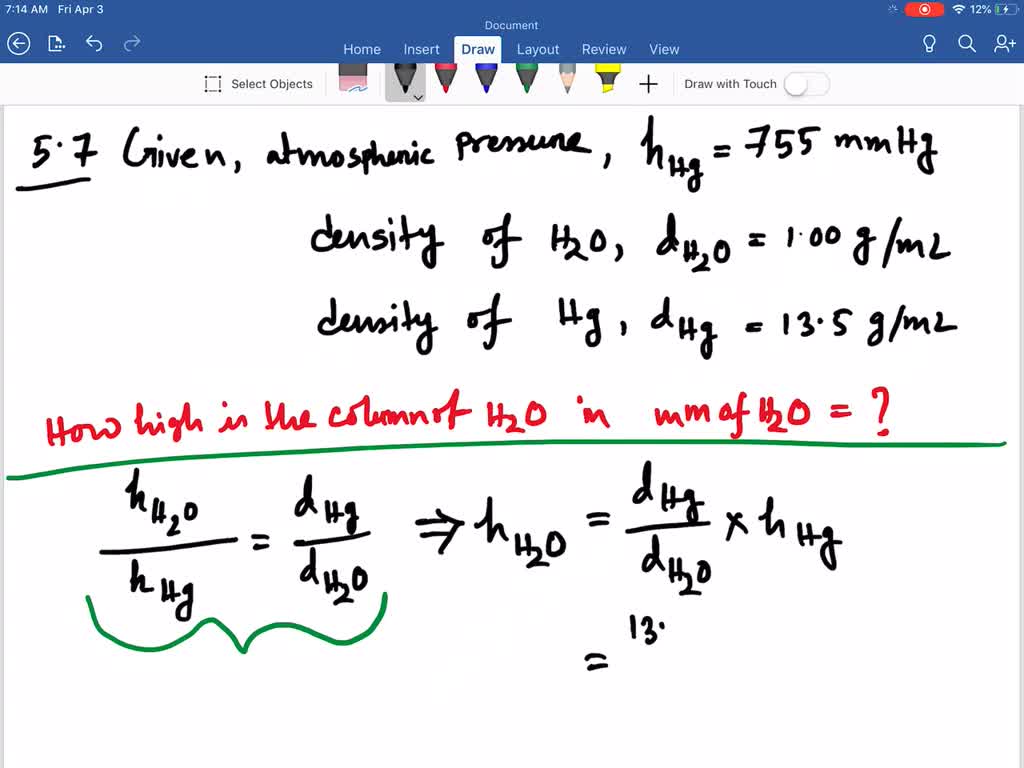 7:14 AM Fri Apr 3
12%
Document
Home Insert Draw Layout Review View
Select Objects
Draw with Touch
5.7 Given, atmospheric pressure, hHg = 755 mmHg
density of H2O, dH2O = 1.00 g/mL
density of Hg, dHg = 13.5 g/mL
How high is the column of H2O in mm of H2O = ?
hH2O / hHg = dHg / dH2O ⇒ hH2O = dHg / dH2O × hHg
= 13.